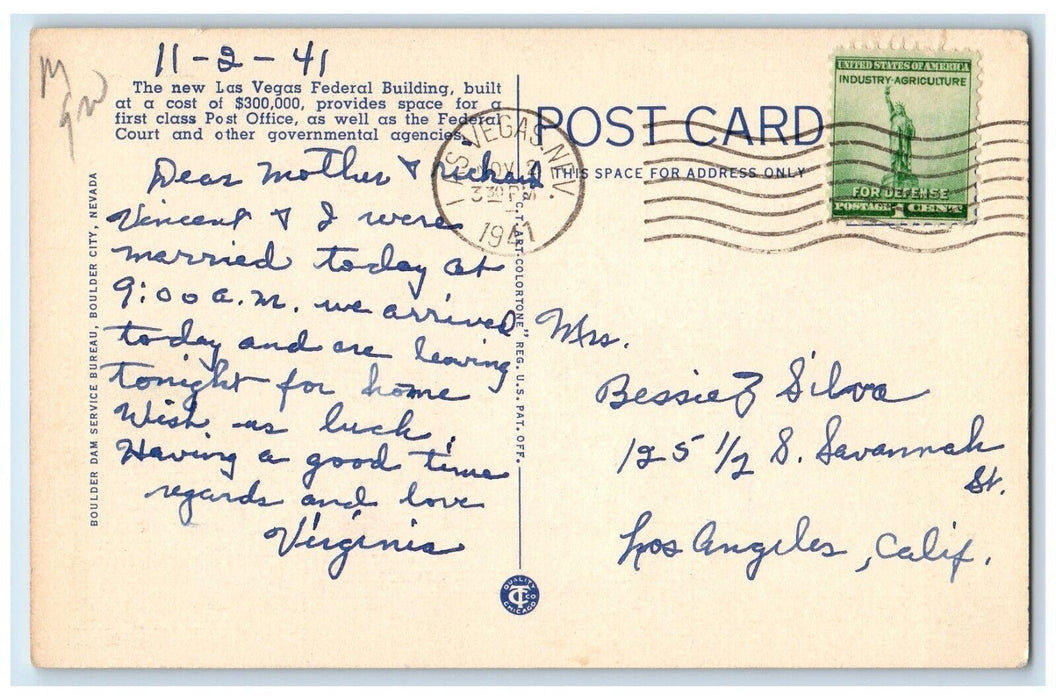 11-2-41
The new Las Vegas Federal Building, built
at a cost of $300,000, provides space for a
first class Post Office, as well as the Federal
Court and other governmental agencies.
Dear Mother & Richard
Vincent & I were
married today at
9:00 a.m. we arrived
today and are leaving
tonight for home
Wish us luck.
Having a good time
regards and love
Virginia
BOULDER DAM SERVICE BUREAU, BOULDER CITY, NEVADA
POST CARD
THIS SPACE FOR ADDRESS ONLY
LAS VEGAS, NEV.
NOV 2
330 PM
1941
C. T. ART-COLORTONE" REG. U.S. PAT. OFF.
UNITED STATES OF AMERICA
INDUSTRY·AGRICULTURE
FOR DEFENSE
POSTAGE 1 CENT
Mrs.
Bessie Silva
125 1/2 S. Savannah
St.
Los Angeles, Calif.
QUALITY
CT CO
CHICAGO